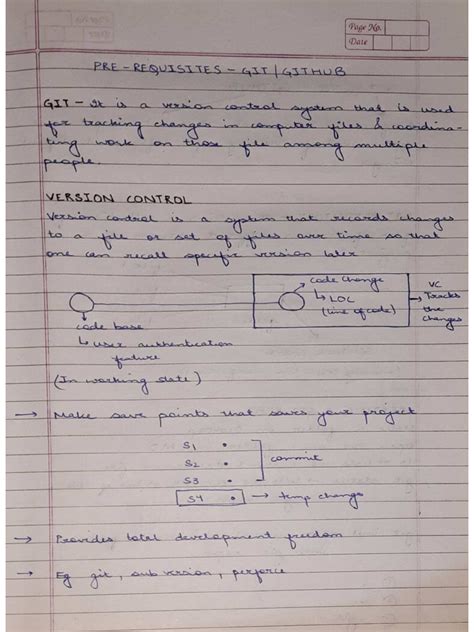 Page No.
Date
PRE-REQUISITES - GIT/GITHUB
GIT - It is a version control system that is used
for tracking changes in computer files & coordina-
ting work on those file among multiple
people.
VERSION CONTROL
Version control is a system that records changes
to a file or set of files over time so that
one can recall specific version later
code change
↳ LOC
(line of code)
VC
Tracks
the
changes
code base
↳ user authentication
feature
(In working state)
→ Make save points that saves your project
S1 •
S2 •
S3 •
commit
S4 • → temp change
→ Provides total development freedom
→ Eg git, sub version, perforce